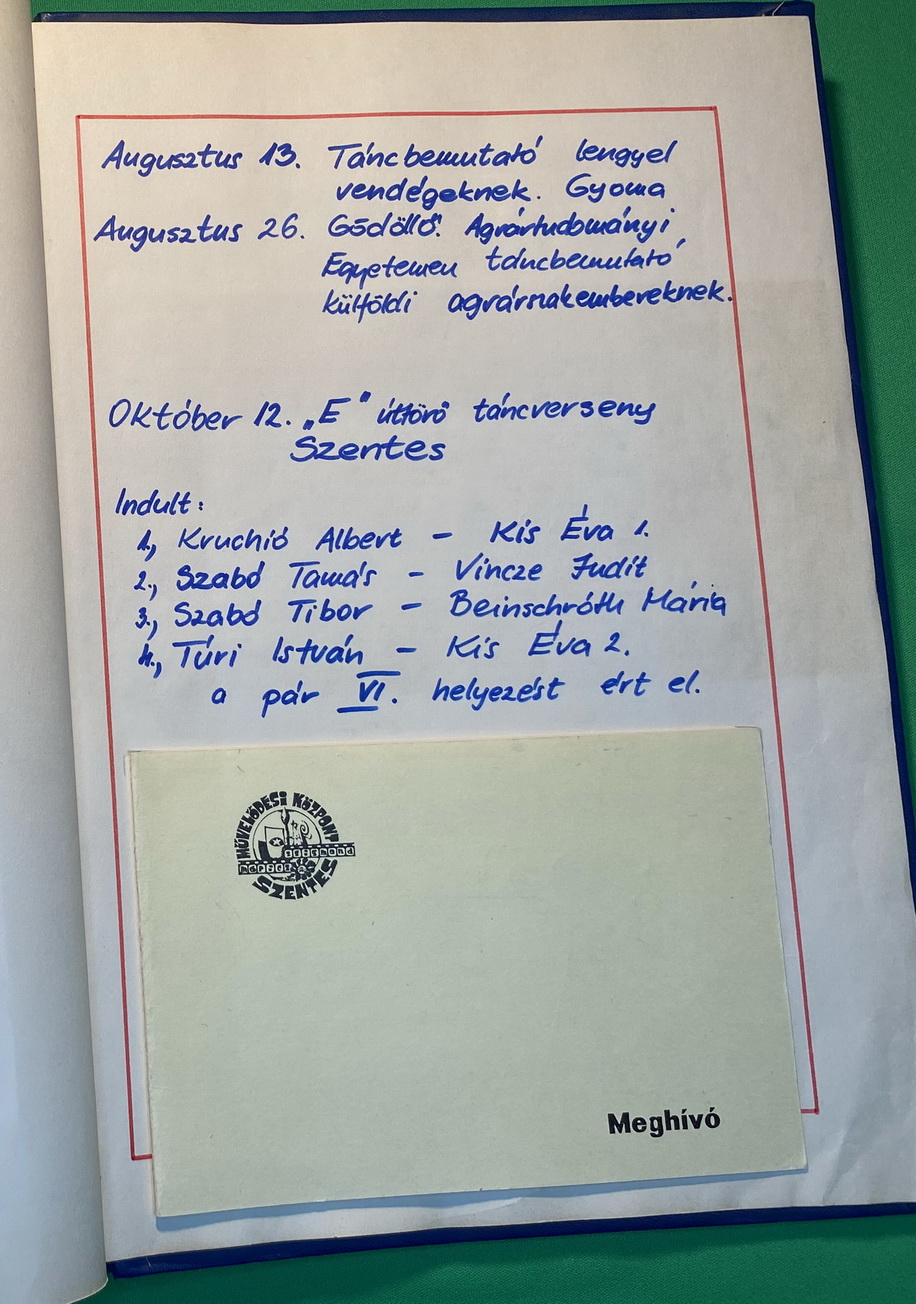 Augusztus 13. Táncbemutató lengyel
vendégeknek. Gyoma
Augusztus 26. Gödöllő. Agrártudományi
Egyetemen táncbemutató
külföldi agrárszakembereknek.
Október 12. „E" úttörő táncverseny
Szentes
Indult:
1., Kruchió Albert - Kis Éva 1.
2., Szabó Tamás - Vincze Judit
3., Szabó Tibor - Beinschróth Mária
4., Túri István - Kis Éva 2.
a pár VI. helyezést ért el.
MŰVELŐDÉSI KÖZPONT
SZENTES
Meghívó